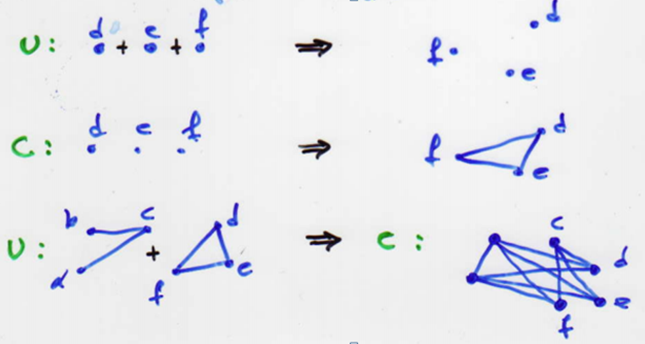 U: d + e + f ⇒ f d e
C: d e f ⇒ f d e
U: b c a + f d e ⇒ C: c d e f